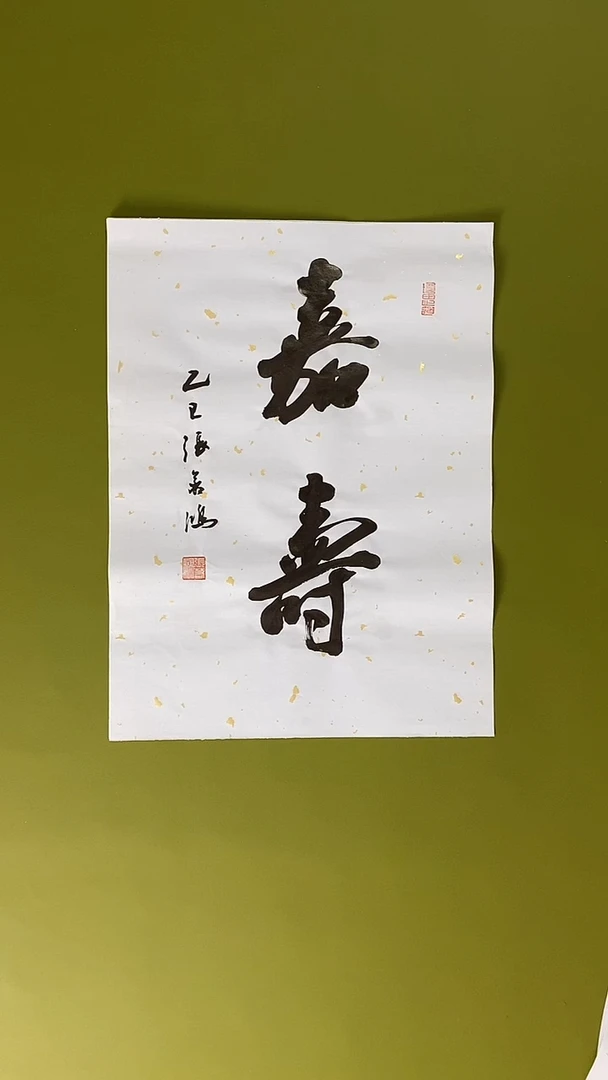 嘉壽
乙巳張